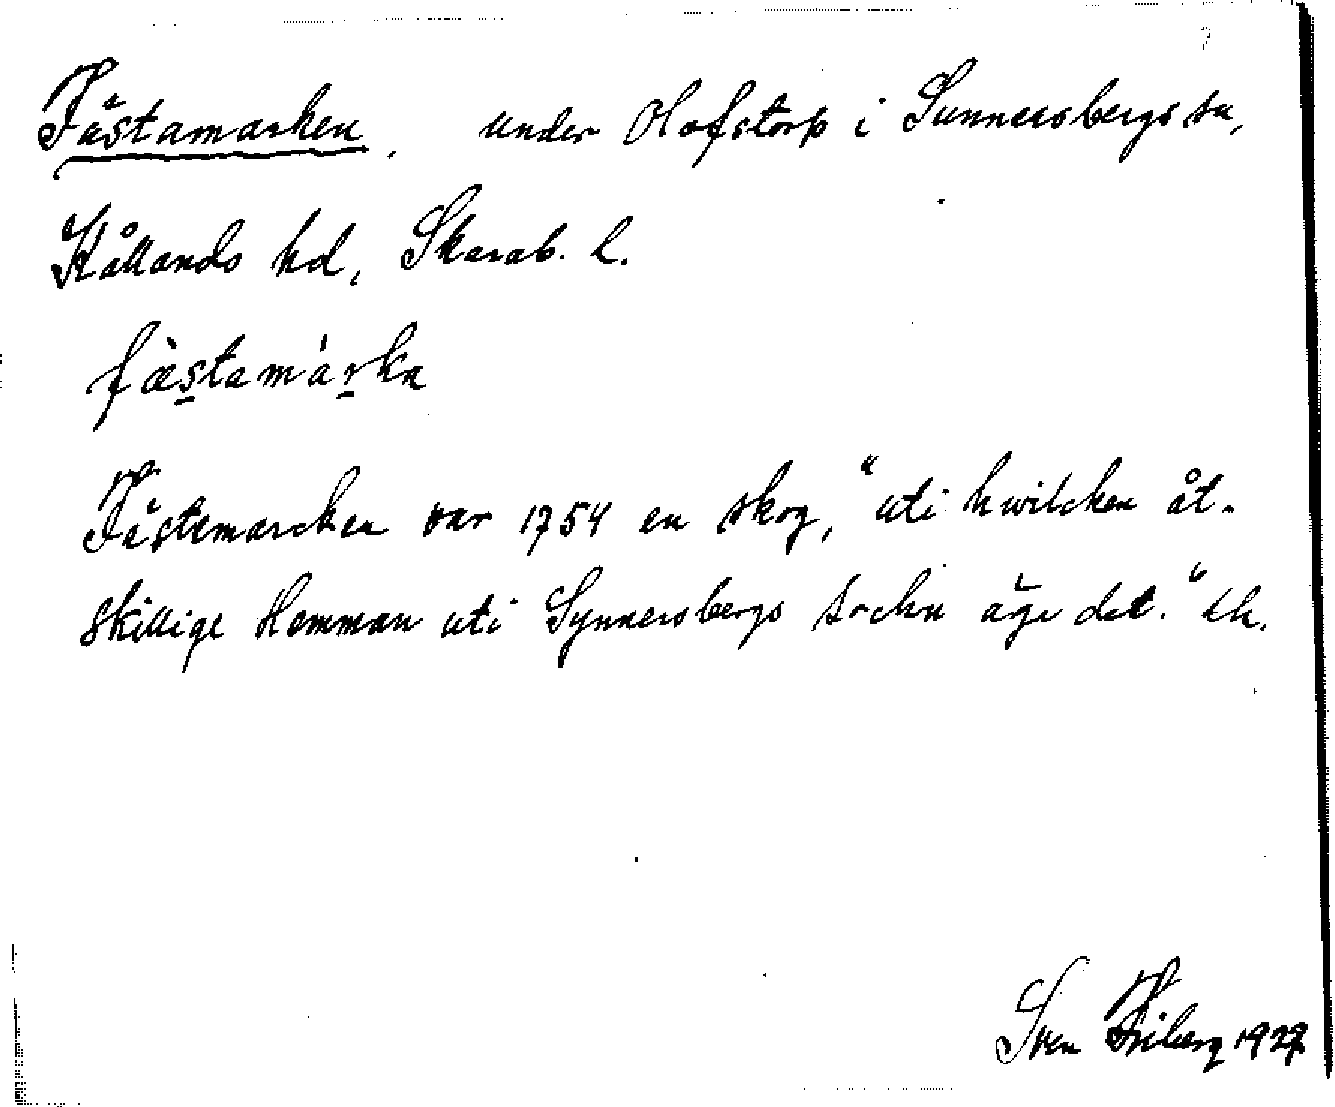 Fästamarken, under Olofstorp i Sunnersbergs sn,
Kållands hd, Skarab. l.
fæ̀stamárka
Fästemarcken var 1754 en skog, "uti hwilcken åt-
skillige Hemman uti Synnersbergs Sochn äge del." Lh.
Sven Friberg 1927